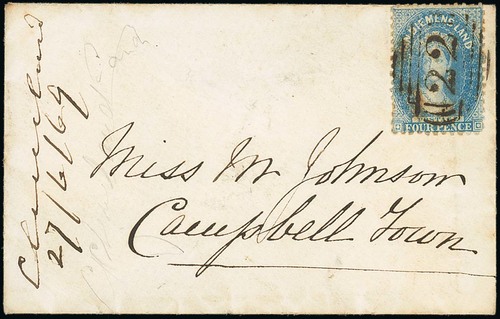 Cleveland
27/6/69
VAN DIEMENS LAND
122
FOUR PENCE
Miss M Johnson
Campbell Town